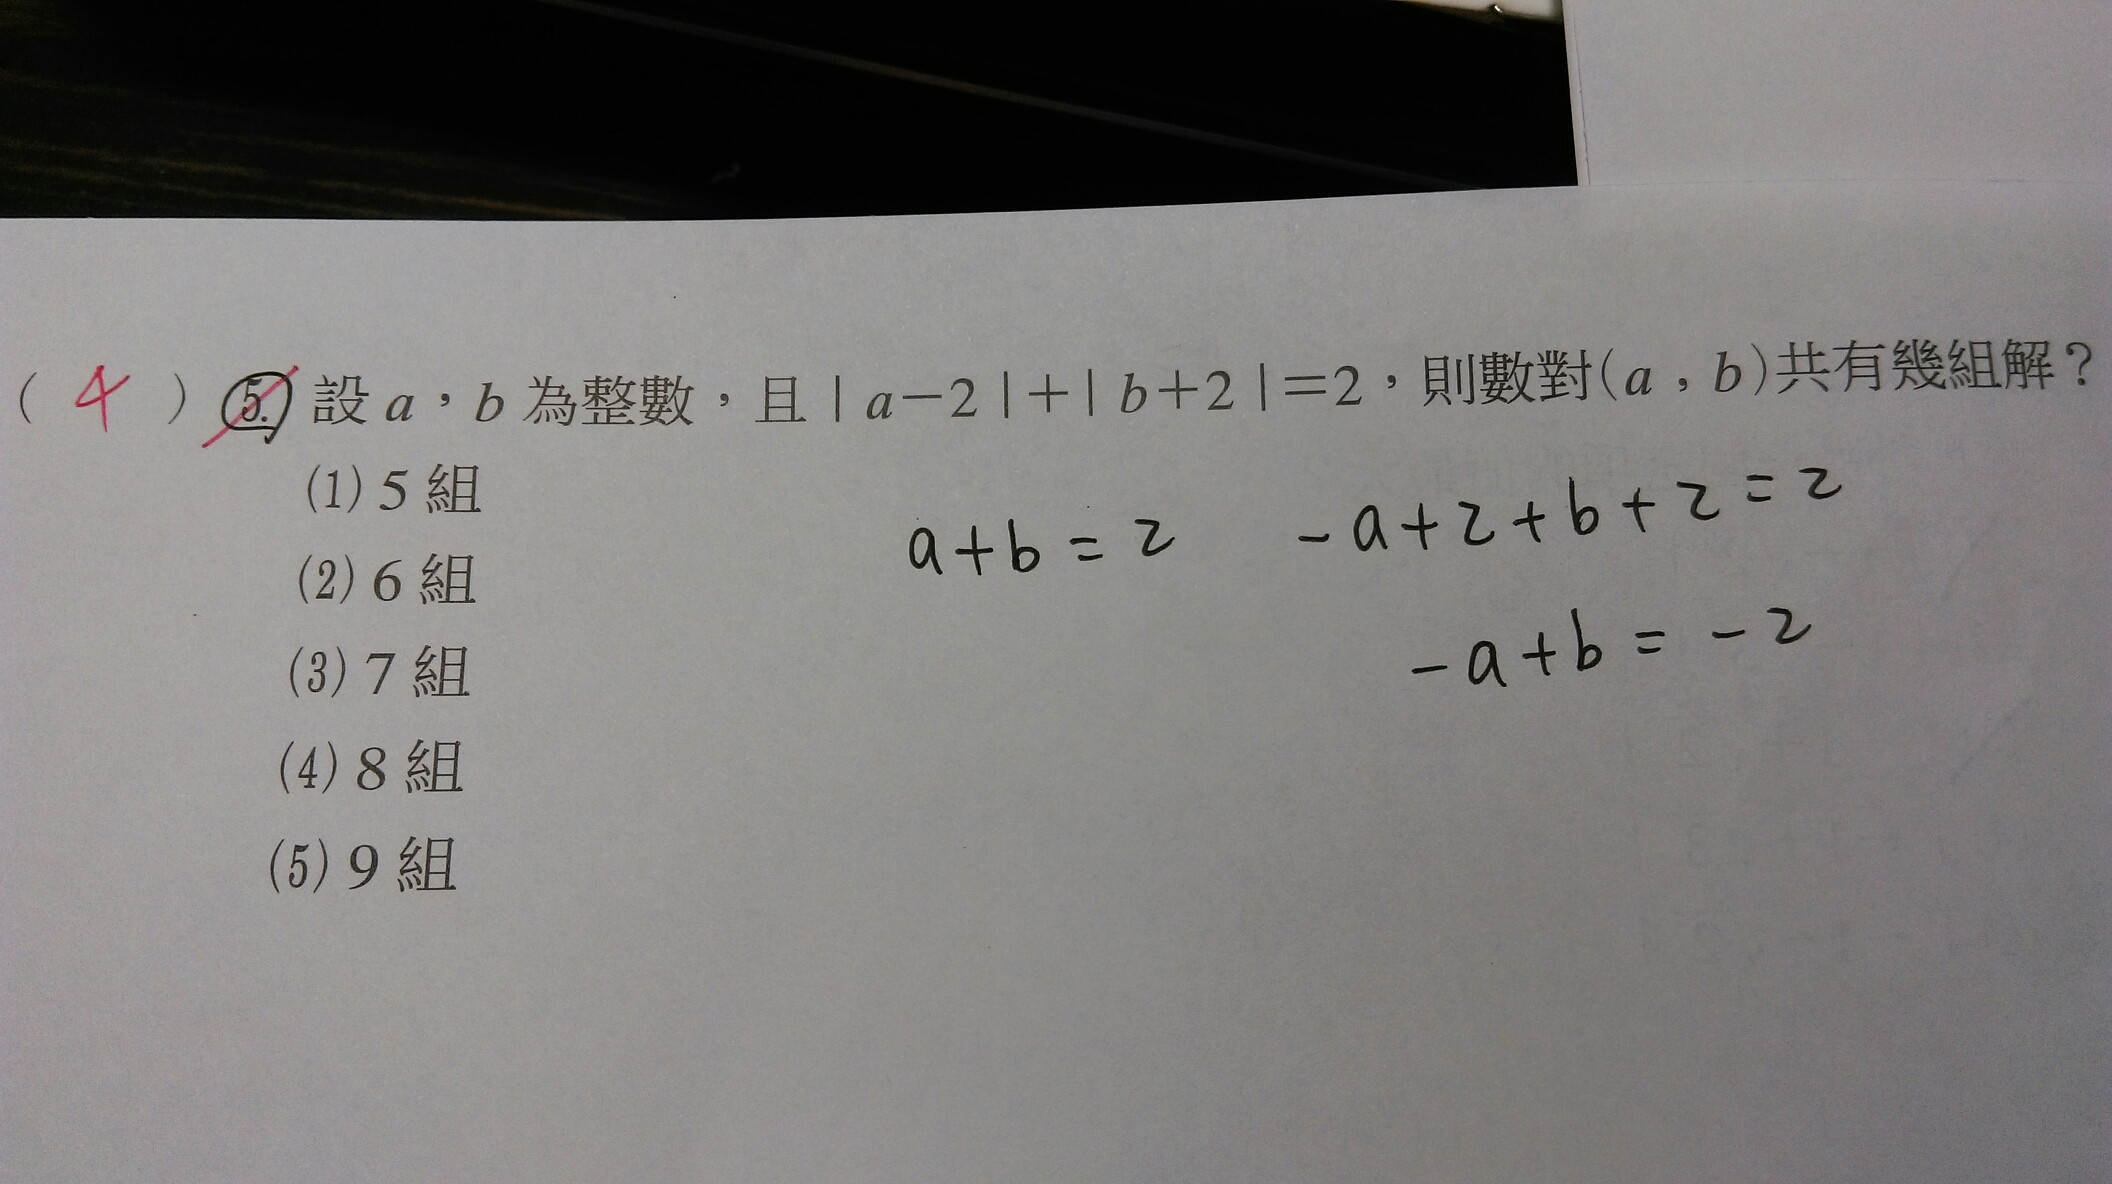 ( 4 ) 5. 設 a，b 為整數，且 | a－2 |＋| b＋2 |＝2，則數對(a , b)共有幾組解？
(1) 5 組
(2) 6 組
(3) 7 組
(4) 8 組
(5) 9 組
a+b=2
-a+2+b+2=2
-a+b=-2